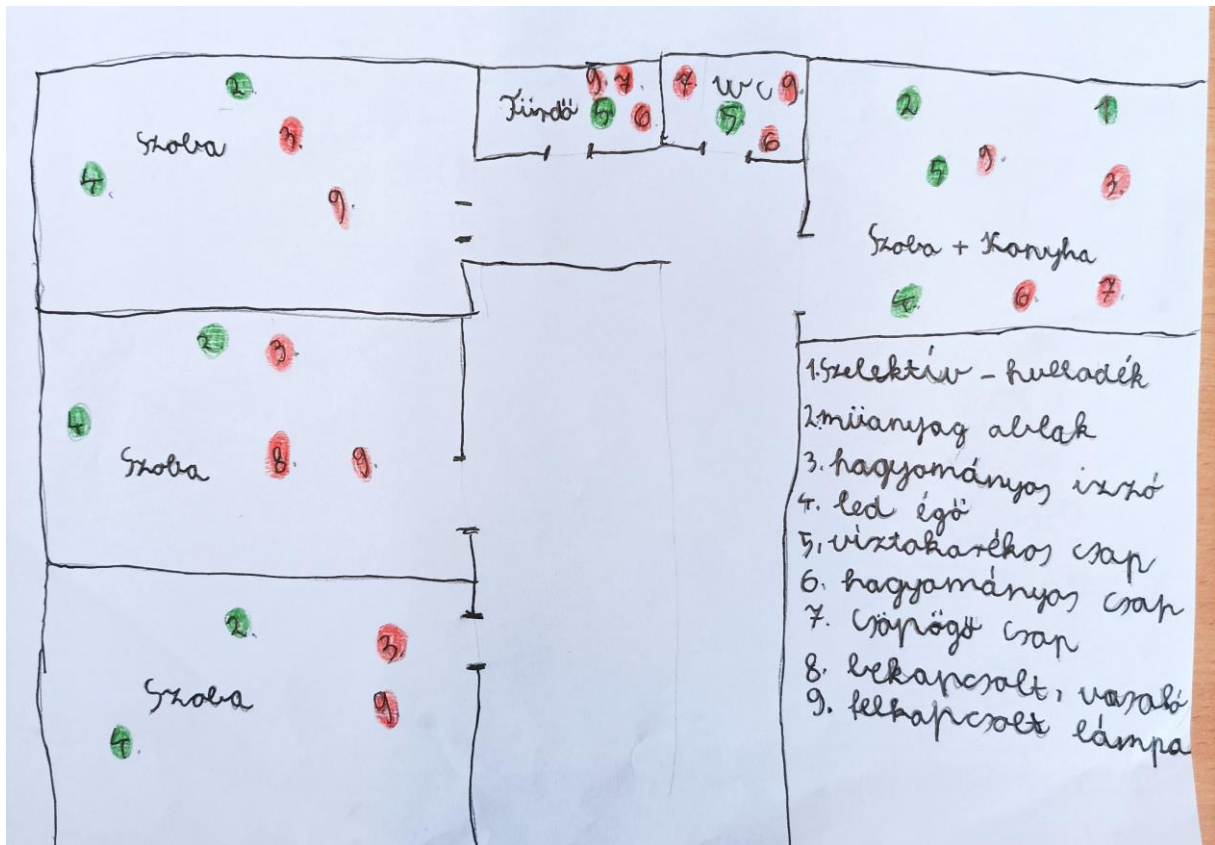 2. 9. 7. 7. WC 9.
Szoba 3. Fürdő 5 6 5 6
4. 9.
2 1
5 9. 3.
Szoba + Konyha
4. 6. 7.
2. 3.
4
Szoba 8. 9.
2. 3.
Szoba 9
4.
1. Szelektív - hulladék
2. műanyag ablak
3. hagyományos izzó
4. led égő
5. víztakarékos csap
6. hagyományos csap
7. Csöpögő csap
8. bekapcsolt, vasaló
9. felkapcsolt lámpa